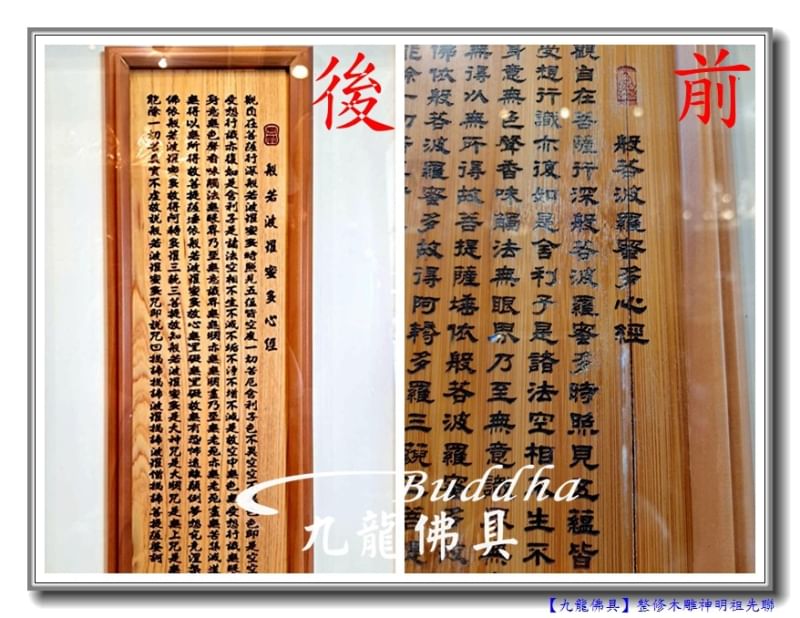 後
般若波羅蜜多心經
觀自在菩薩行深般若波羅蜜多時照見五蘊皆空度一切苦厄舍利子色不異空空不色即是空空
受想行識亦復如是舍利子是諸法空相不生不滅不垢不淨不增不減是故空中無色無受想行識無眼
身意無色聲香味觸法無眼界乃至無意識界無無明亦無無明盡乃至無老死亦無老死盡無苦集滅道
無得以無所得故菩提薩埵依般若波羅蜜多故心無罣礙無罣礙故無有恐怖遠離顛倒夢想究竟涅槃
佛依般若波羅蜜多故得阿耨多羅三藐三菩提故知般若波羅蜜多是大神咒是大明咒是無上咒是無
能除一切苦真實不虛故說般若波羅蜜多咒即說咒曰揭諦揭諦波羅揭諦波羅僧揭諦菩提薩婆訶
前
般若波羅蜜多心經
觀自在菩薩行深般若波羅蜜多時照見五蘊皆
受想行識亦復如是舍利子是諸法空相不生不
身意無色聲香味觸法無眼界乃至無意識界無
無得以無所得故菩提薩埵依般若波羅蜜多故
佛依般若波羅蜜多故得阿耨多羅三藐菩提
能除一切
Buddha
九龍佛具
【九龍佛具】整修木雕神明祖先聯